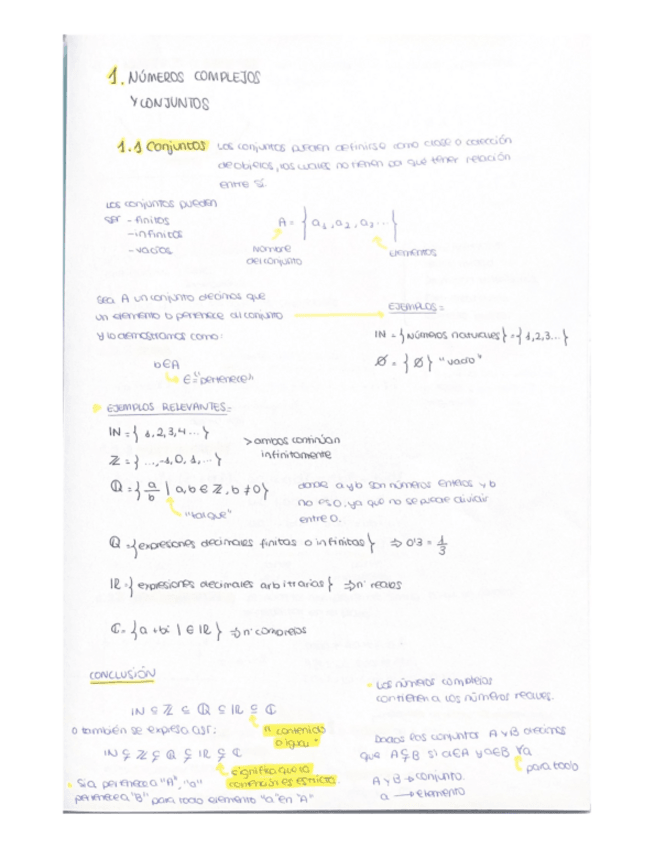 1. NÚMEROS COMPLEJOS
Y CONJUNTOS
1.1 Conjuntos Los conjuntos pueden definirse como clase o colección
de objetos, los cuales no tienen por qué tener relación
entre sí.
Los conjuntos pueden
ser - finitos
- infinitos
- vacíos
A = { a₁, a₂, a₃ ... }
Nombre
del conjunto
elementos
Sea A un conjunto decimos que
un elemento b pertenece al conjunto
y lo demostramos como:
b∈A
∈ = "pertenece"
EJEMPLOS:
IN = { Números naturales } = { 1, 2, 3... }
Ø = { Ø } "vacío"
EJEMPLOS RELEVANTES:
IN = { 1, 2, 3, 4 ... }
ℤ = { ..., -1, 0, 1, ... }
> ambos continúan
infinitamente
ℚ = { a/b | a, b ∈ ℤ, b ≠ 0 }
"tal que"
donde a y b son números enteros y b
no es 0, ya que no se puede dividir
entre 0.
ℚ = { expresiones decimales finitas o infinitas } ⇒ 0'3 = 1/3
IR = { expresiones decimales arbitrarias } ⇒ nº reales
ℂ = { a + bi | ∈ IR } ⇒ nº complejos
CONCLUSIÓN
IN ⊆ ℤ ⊆ ℚ ⊆ IR ⊆ ℂ
"contenido
o igual"
o también se expresa así:
IN ⊊ ℤ ⊊ ℚ ⊊ IR ⊊ ℂ
significa que la
contención es estricta.
Si a pertenece a "A", "a"
pertenece a "B" para todo elemento "a" en "A"
Los números complejos
contienen a los números reales.
Dados los conjuntos A y B decimos
que A⊊B si a∈A y a∈B ∀a
para todo
A y B → conjunto.
a → elemento